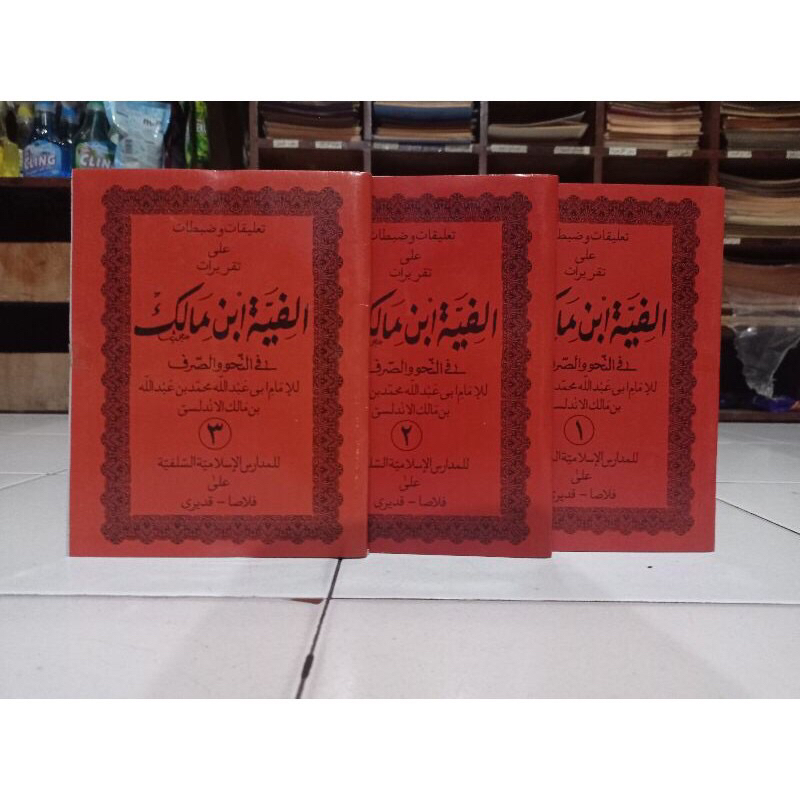 تعليقات وضبطات
على
تقريرات
الفيّة ابن مالك
فى النحو والصّرف
للإمام ابى عبدالله محمّد بن عبدالله
بن مالك الاندلسى
٣
للمدارس الإسلاميّة السّلفيّة
على
فلاصا - قديرى
تعليقات وضبطات
على
تقريرات
الفيّة ابن مالك
فى النحو والصّرف
للإمام ابى عبدالله محمّد بن
بن مالك الاندلسى
٢
للمدارس الإسلاميّة
على
فلاصا - قديرى
تعليقات وضبطات
على
تقريرات
الفيّة ابن
فى النحو والصّرف
للإمام ابى عبدالله محمّد
بن مالك الاندلسى
١
للمدارس الإسلاميّة
على
فلاصا - قديرى
CLING
CLIN